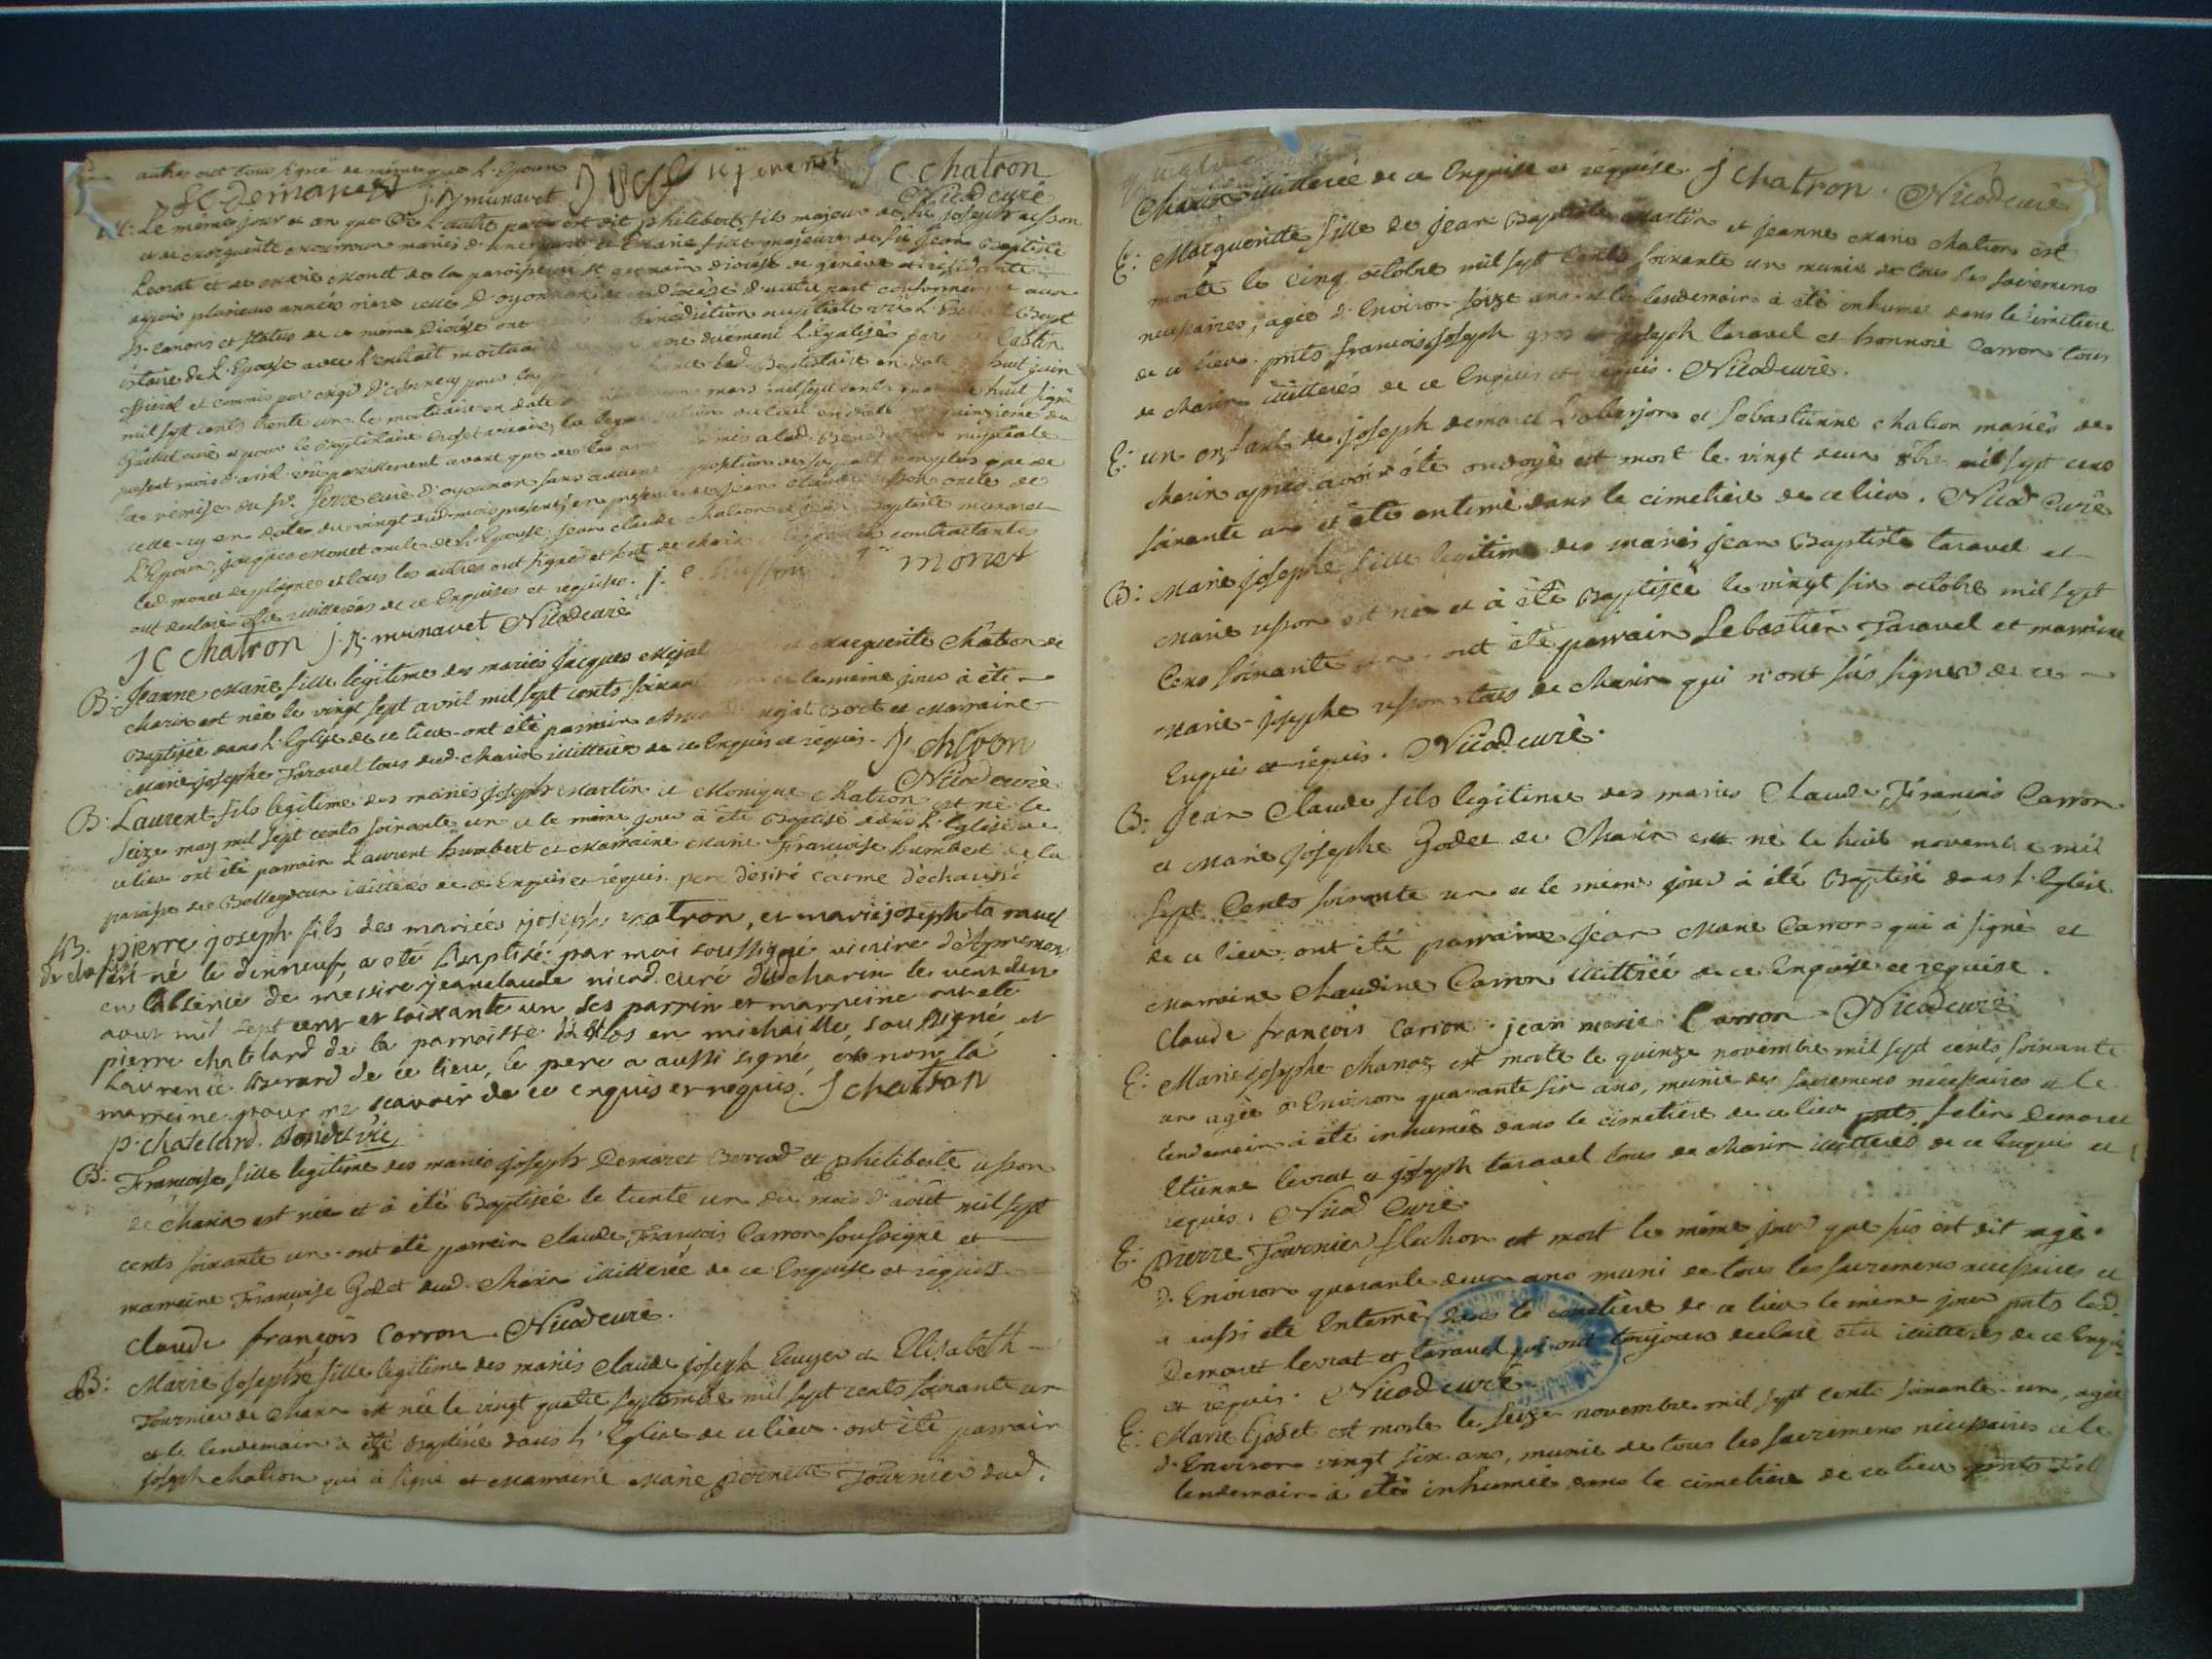 autres ont tous signé de même que l'Epoux
J B munavet J C chatron
Nicod curé
Le même jour et an que de l'autre part est dit philibert fils majeur de feu joseph usson
et de marguerite mariés d'une part et Marie fille majeure de feu jean Baptiste
Levrat et de marie Monet de la paroisse de st germain diocese de genève et residante
depuis plusieurs années riere celle d'oyonnax d'autre part conformement aux
Sts canons et statuts de ce même diocese ont benediction nuptiale vû l'Extrait Bapt
istaire de l'Epouse avec l'extrait mortuaire duement légalisés par
official et commis par mgr d'annecy pour led. Baptistaire en date huit juin
mil sept cents trente un le mortuaire en date mars mil sept cents quarante huit signé
present mois d'avril vû pareillement avant que de les admis a lad. Benediction nuptiale
la remise du sr. curé d'oyonnax sans aucune opposition non plus que de
cette-cy en date du vingt dud. mois present, en presence de jean claude usson oncle de
l'Epoux, jacques monet oncle de l'Epouse, jean claude chatron et jean Baptiste munavet
led. monet de plagnes et tous les autres ont signés et sont de charix les parties contractantes
ont declaré être illitterés de ce Enquises et requises. j. c. husson j. monet
J C chatron J B munavet Nicod curé
B: Jeanne Marie fille légitime des mariés Jacques Mejat et Marguerite Chatron de
charix est née le vingt sept avril mil sept cents soixante un et le même jour à été
Baptisée dans l'Eglise de ce lieu. ont été parrain mejat Boct et Marraine
Marie josephe Taravel tous dud. Charix illitterés de ce Enquis et requis. J chtron
Nicod curé
B: Laurent fils legitime des mariés joseph Martin et Monique Chatron est né le
Seize may mil sept cents soixante un et le même jour à été Baptisé dans l'Eglise de
ce lieu ont été parrain Laurent humbert et Marraine Marie Françoise humbert de la
paroisse de Belleydoux illitterés de ce Enquis et requis. pere désiré carme dechaussé
B. pierre joseph fils des mariées joseph chatron, et marie joseph ta ravel
de charix est né le dixneuf, a eté baptisé par moi soussigné vicaire d'Apremon
en labsence de messire jeanclaude nicod curé du charix le vent deux
aout mil sept cent et soixante un ses parrin et marreine ont eté
pierre chatelard de la parroisse d'Ablos en michaille, soussigné et
Laurence Berard de ce lieu, le pere a aussi signé, et non la
marreine pour ne scavoir de ce enquis et requis. J chatron
p. chatelard. Bondet vic
B: Françoise fille legitime des mariés joseph Demoret Berrod et philiberte usson
de charix est née et à été Baptisée le trente un du mois d'août mil sept
cents soixante un. ont été parrain claude François Carron soussigné et
marreine Françoise Godet dud. Charix illitterée de ce Enquise et requise
claude françois Carron Nicod curé.
B: Marie Josephe fille legitime des mariés Claude joseph Cuyer et Elisabeth
Tournier de charix est née le vingt quatre septembre mil sept cents soixante un
et le lendemain a été Baptisée dans l'Eglise de ce lieu. ont été parrain
joseph Chatron qui à signé et Marraine Marie pernette Tournier dud.
Charix illitterée de ce Enquise et requise. J Chatron. Nicod curé
E: Margueritte fille de jean Baptiste Martin et jeanne Marie Chatron est
morte le cinq octobre mil sept cents soixante un munie de tous les sacremens
necessaires, agée d'Environ seize ans et le lendemain à été inhumée dans le cimetiere
de ce lieu. pnts francois joseph gros joseph taravel et honnoré Carron tous
de charix illitterés de ce Enquis et requis. Nicod curé.
E: un enfant de joseph demoret et Sebastienne chatron mariés de
charix après avoir été ondoyé est mort le vingt deux 8bre mil sept cens
soixante un et été enterré dans le cimetiere de ce lieu. Nicod Curé
B: Marie josephe fille legitime des mariés jean Baptiste taravel et
Marie usson est née et à été Baptisée le vingt six octobre mil sept
cens soixante un. ont été parrain Sebastien Taravel et marraine
Marie-josephe usson tous de Charix qui n'ont sûs signer de ce
Enquis et requis. Nicod curé.
B: Jean Claude fils legitime des mariés Claude François Carron
et Marie Josephe Godet de Charix est né le huit novembre mil
sept Cents soixante un et le même jour à été Baptisé dans l'Eglise
de ce lieu. ont été parrain Jean Marie Carron qui à signé et
Marraine Claudine Carron illittrée de ce Enquise et requise.
Claude françois Carron. jean marie Carron Nicod curé
E: Marie josephe Chanoz est morte le quinze novembre mil sept cents soixante
un agée d'Environ quarante six ans, munie des sacremens nécessaires et le
lendemain à été inhumée dans le cimetiere de ce lieu pnts felix Demoret
Etienne levrat et joseph taravel tous de charix illitterés de ce Enquis et
requis. Nicod Curé
E: Pierre Tournier fluchon est mort le même jour que sus est dit agé
d'Environ quarante deux ans muni de tous les sacremens necessaires et
a aussi été Enterré dans le cimetiere de ce lieu le même jour pnts lesd.
Demoret levrat et taravel qui ont toujours declaré etre illitterés de ce Enquis
et requis. Nicod curé
E: Marie Godet est morte le seize novembre mil sept cents soixante-un, agée
d'Environ vingt six ans, munie de tous les sacremens nécessaires et le
lendemain à été inhumée dans le cimetiere de ce lieu pnts